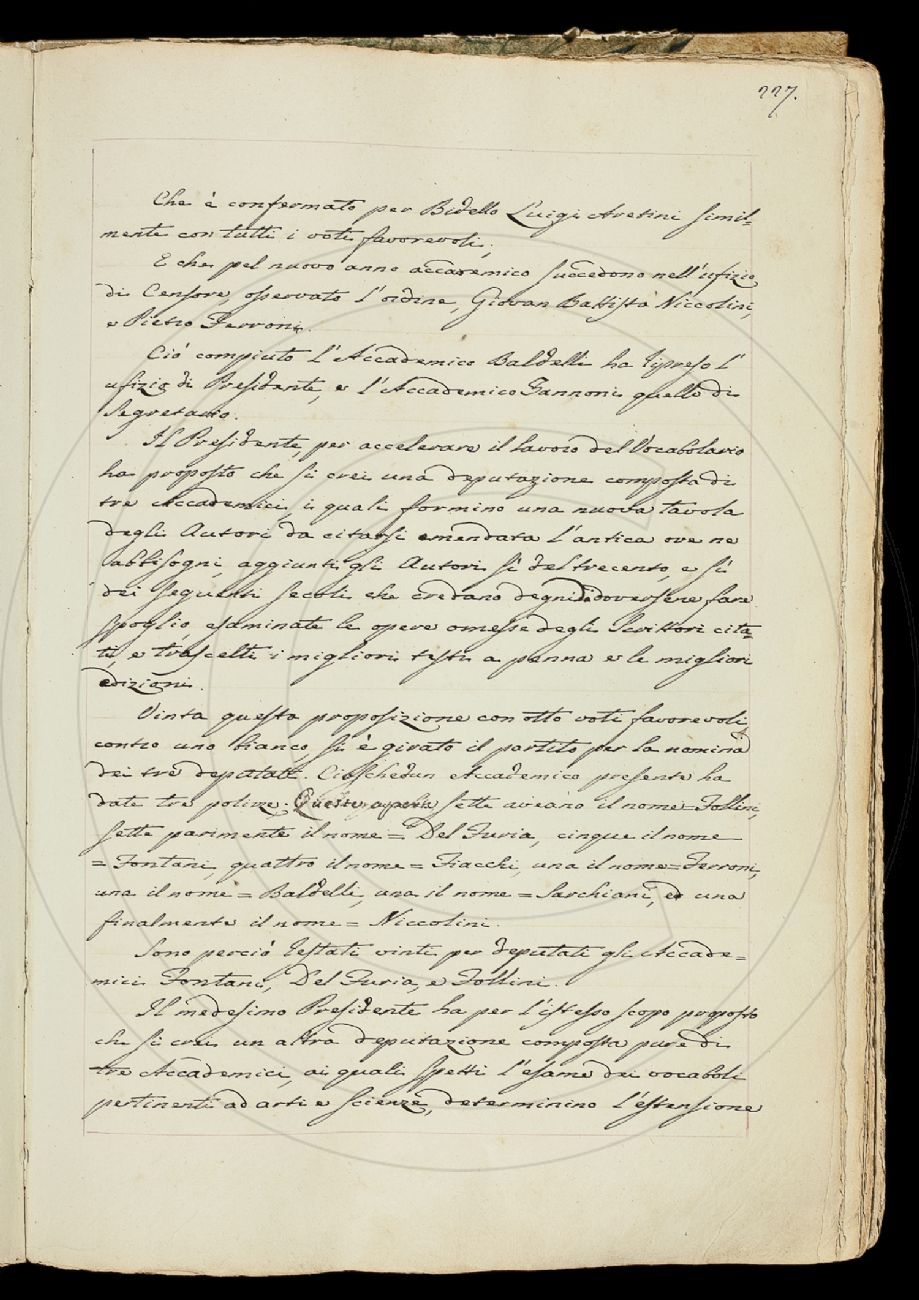 227.
Che è confermato per Bidello Luigi Aretini simil=
mente con tutti i voti favorevoli,
E che pel nuovo anno accademico succedono nell'ufizio
di Censore, osservato l'ordine, Giovan Battista Niccolini,
e Pietro Ferroni.
Ciò compiuto l'Accademico Baldelli ha ripreso l'
ufizio di Presidente, e l'Accademico Zannoni quello di
Segretario.
Il Presidente, per accelerare il lavoro del Vocabolario
ha proposto che si crei una deputazione composta di
tre Accademici, i quali formino una nuova tavola
degli Autori da citarsi emendata l'antica ove ne
abbisogni, aggiunti gli Autori sì del trecento, e sì
dei seguenti secoli che credano degni di doversene fare
spoglio, esaminate le opere omesse degli Scrittori cita=
ti, e trascelti i migliori testi a penna e le migliori
edizioni.
Vinta questa proposizione con otto voti favorevoli
contro uno bianco, si è girato il partito per la nomina
dei tre deputati. Ciaschedun Accademico presente ha
date tre polizze. Queste aperte sette aveano il nome = Follini,
sette parimente il nome = Del Furia, cinque il nome
= Fontani, quattro il nome = Fiacchi, una il nome = Ferroni,
una il nome = Baldelli, una il nome = Sarchiani, ed una
finalmente il nome = Niccolini.
Sono perciò restati vinti per deputati gli Accade=
mici Fontani, Del Furia, e Follini.
Il medesimo Presidente ha per l'istesso scopo proposto
che si crei un altra deputazione composta pure di
tre Accademici, ai quali spetti l'esame dei vocaboli
pertinenti ad arti e scienze, determinino l'estensione